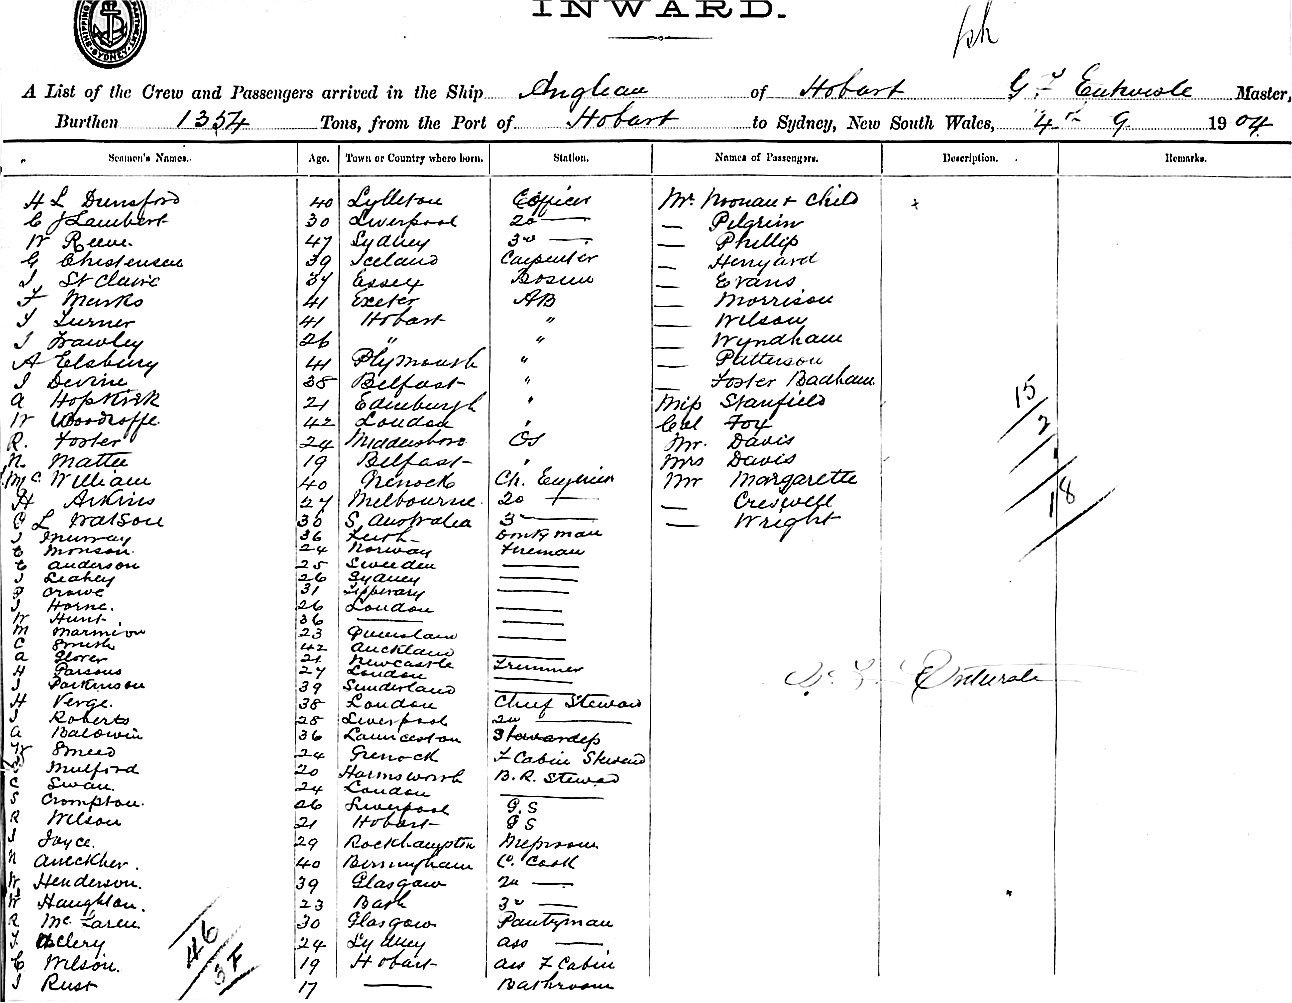 INWARD.
A List of the Crew and Passengers arrived in the Ship Anglian of Hobart G F Entwisle Master,
Burthen 1354 Tons, from the Port of Hobart to Sydney, New South Wales, 4th 9 1904
Seamen's Names. Age. Town or Country where born. Station. Names of Passengers. Description. Remarks.
H L Dunsford 40 Lyttleton C Officer Mr. Noonan & Child
C J Lambert 30 Liverpool 2o — — Pilgrim
W Reeve. 47 Sydney 3o — — Phillip
G Chistensen 39 Iceland Carpenter — Henyard
J. St Claire 34 Essex Bosun — Evans
F Marks 41 Exeter AB — Morrison
J Turner 41 Hobart " — Wilson
J Frawley 26 " " — Wyndham
A Elsbury 41 Plymouth " — Patterson
J Devine 38 Belfast " — Foster Badham
A Hopkirk 21 Edinburgh " Miss Stanfield 15
W Woodroffe. 42 London " Col Foy 2
R. Foster 24 Middlesboro OS Mr. Davis
N. Mattee 19 Belfast " Mrs Davis 1
Mc William 40 Grenock Ch. Engineer Mr Margarette 18
H Atkins 27 Melbourne 2o — — Creswell
C L Watson 30 S Australia 3 — — Wright
J Murray 36 Leith Donkyman
C Monson. 24 Norway Fireman
C Anderson 25 Sweeden —
J Leahey 26 Sydney —
P Crowe 31 Tipperary —
J Horne. 26 London —
W Hunt. 36 — —
M Marmion 23 Queensland —
C Smith 42 Auckland —
A Glover 21 Newcastle Trimmer
H Parsons 27 London —
J Parkinson 39 Sunderland —
H Verge. 38 London Chief Steward
J Roberts 28 Liverpool 2o —
A Baldwin 36 Launceston Stewardess
W Smeed 24 Grenock F Cabin Steward
Mulford 20 Harmsworth B. R. Steward
C Swan. 24 London —
S Crompton. 26 Liverpool G.S
R Wilson 21 Hobart GS
J Joyce. 29 Rockhampton Messroom
N Aneckher. 40 Birmingham C. Cook
W Henderson. 39 Glasgow 2o —
W Haughton. 23 Bath 3o —
R McLaren 30 Glasgow Pantryman
J Clery 24 Sydney ass —
C Wilson. 19 Hobart ass F Cabin
J Rust 17 — Bathroom
46
3F